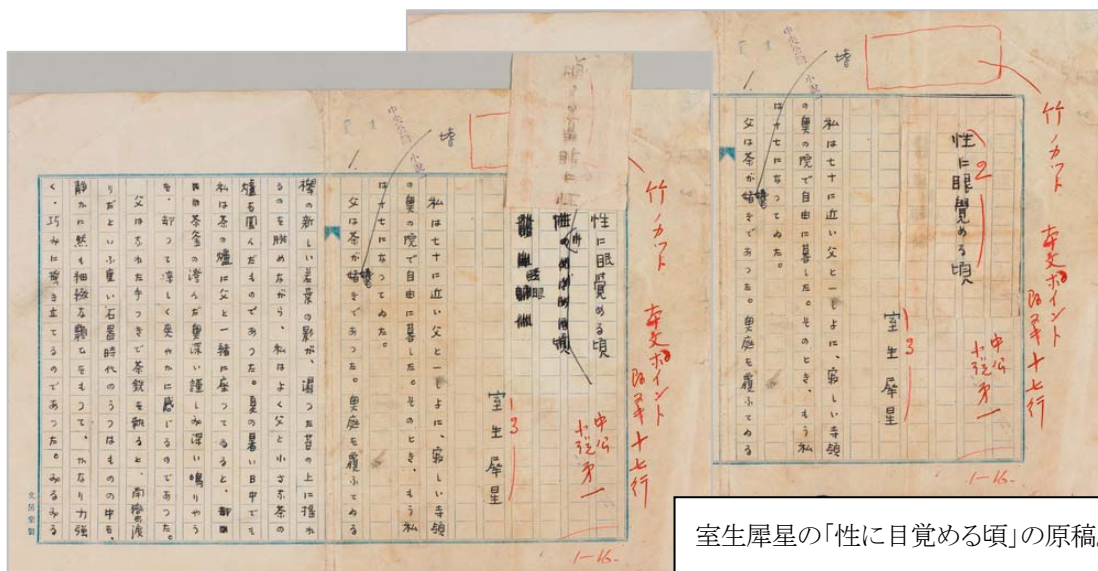 竹ノカット 本文ポイント
十七行
中公
小説第一
性に眼覚める頃
13
室生犀星
私は七十に近い父と一しよに、寂しい寺領
の奥の院で自由に暮した。そのとき、もう私
は十七になつてゐた。
父は茶が嗜きであつた。奥庭を覆ふてゐる
嗜
中央公論
小説
1-16-
竹ノカット 本文ポイント
十七行
中公
小説第一
性に眼覚める頃
13
室生犀星
私は七十に近い父と一しよに、寂しい寺領
の奥の院で自由に暮した。そのとき、もう私
は十七になつてゐた。
父は茶が嗜きであつた。奥庭を覆ふてゐる
欅の新しい若葉の影が、湿つた苔の上に揺れ
るのを眺めながら、私はよく父と小さな茶の
炉を囲んだものであつた。夏の暑い日中でも
私は茶の炉に父と一緒に座つてゐると、
茶釜の澄んだ奥深い謹しみ深い鳴りやう
を、却つて涼しく爽やかに感じるのであつた。
父はなれた手つきで茶筅を執ると、南蛮渡
りだといふ重い石器時代のうつはものの中を、
静かに然も細緻な顫ひをもつて、かなり力強
く、巧みに掻き立てるのであつた。みるみる
嗜
中央公論
小説
文房堂製
1-16-
室生犀星の「性に目覚める頃」の原稿。